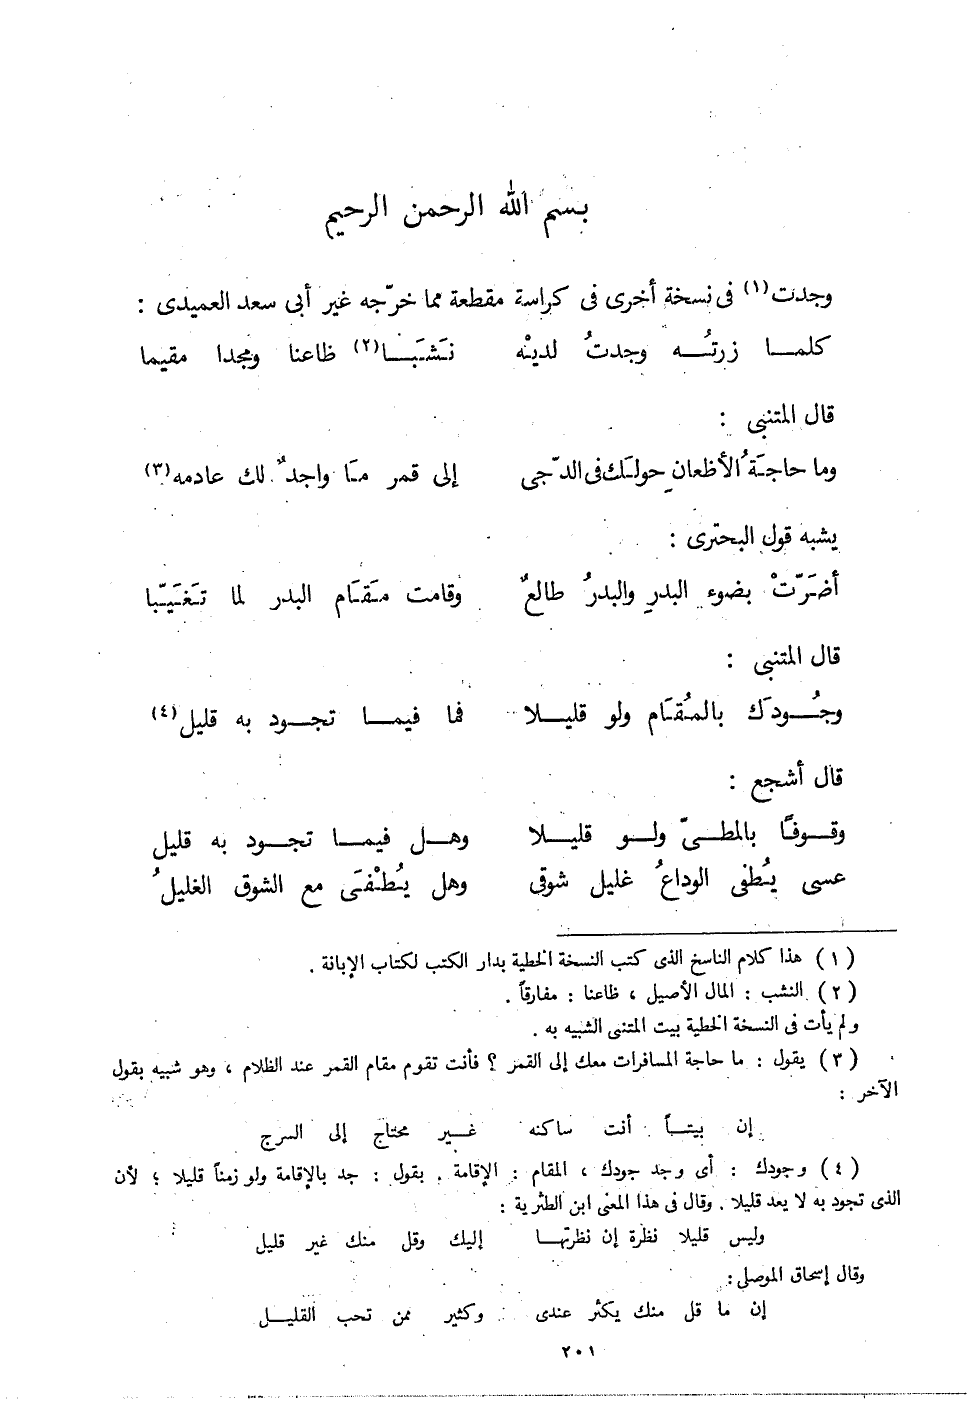 بسم الله الرحمن الرحيم
وجدت(١) فى نسخة أخرى فى كراسة مقطعة مما خرّجه غير أبى سعد العميدى :
كلمـــا زرتُـــه وجدتُ لديـْه نَـشَـبَـــا(٢) ظاعنا ومجدا مقيما
قال المتنبى :
وما حاجـَةُ الأظعانِ حولـَك فى الدّجى إلى قمر مـَا واجدٌ لك عادمه(٣)
يشبه قول البحترى :
أضـَرّتْ بضوء البدرِ والبدرُ طالعٌ وقامت مـَقـَام البدر لما تـَغـَيـّبا
قال المتنبى :
وجـُــودَك بالمـُقـَام ولو قليــلا فما فيمـــا تجــود به قليل(٤)
قال أشجع :
وقــوفًا بالمطــىّ ولــو قليــلا وهــل فيمـــا تجــود به قليل
عسى يـُطفى الوداعُ غليل شوقى وهل يـُطـْفـَى مع الشوق الغليلُ
(١) هذا كلام الناسخ الذى كتب النسخة الخطية بدار الكتب لكتاب الإبانة .
(٢) النشب : المال الأصيل ، ظاعنا : مفارقاً .
ولم يأت فى النسخة الخطية بيت المتنبى الشبيه به .
(٣) يقول : ما حاجة المسافرات معك إلى القمر ؟ فأنت تقوم مقام القمر عند الظلام ، وهو شبيه بقول
الآخر :
إن بيتــاً أنت ساكنه غــير محتاج إلى السرج
(٤) وجودك : أى وجد جودك ، المقام : الإقامة . يقول : جد بالإقامة ولو زمناً قليلا ؛ لأن
الذى تجود به لا يعد قليلا . وقال فى هذا المعنى ابن الطثرية :
وليس قليلا نظرة إن نظرتهــا إليك وقل منك غير قليل
وقال إسحاق الموصلى:
إن ما قل منك يكثر عندى وكثير ممن تحب القليــل
٢٠١